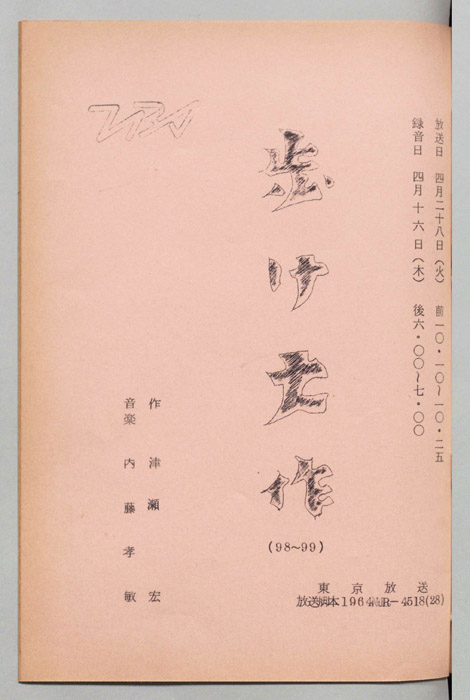 放送日 四月二十八日(火) 前一〇・一〇~一〇・二五
録音日 四月十六日(木) 後六・〇〇~七・〇〇
歩け吉作
(98~99)
東京放送
作 津瀬 宏
音楽 内藤孝敏